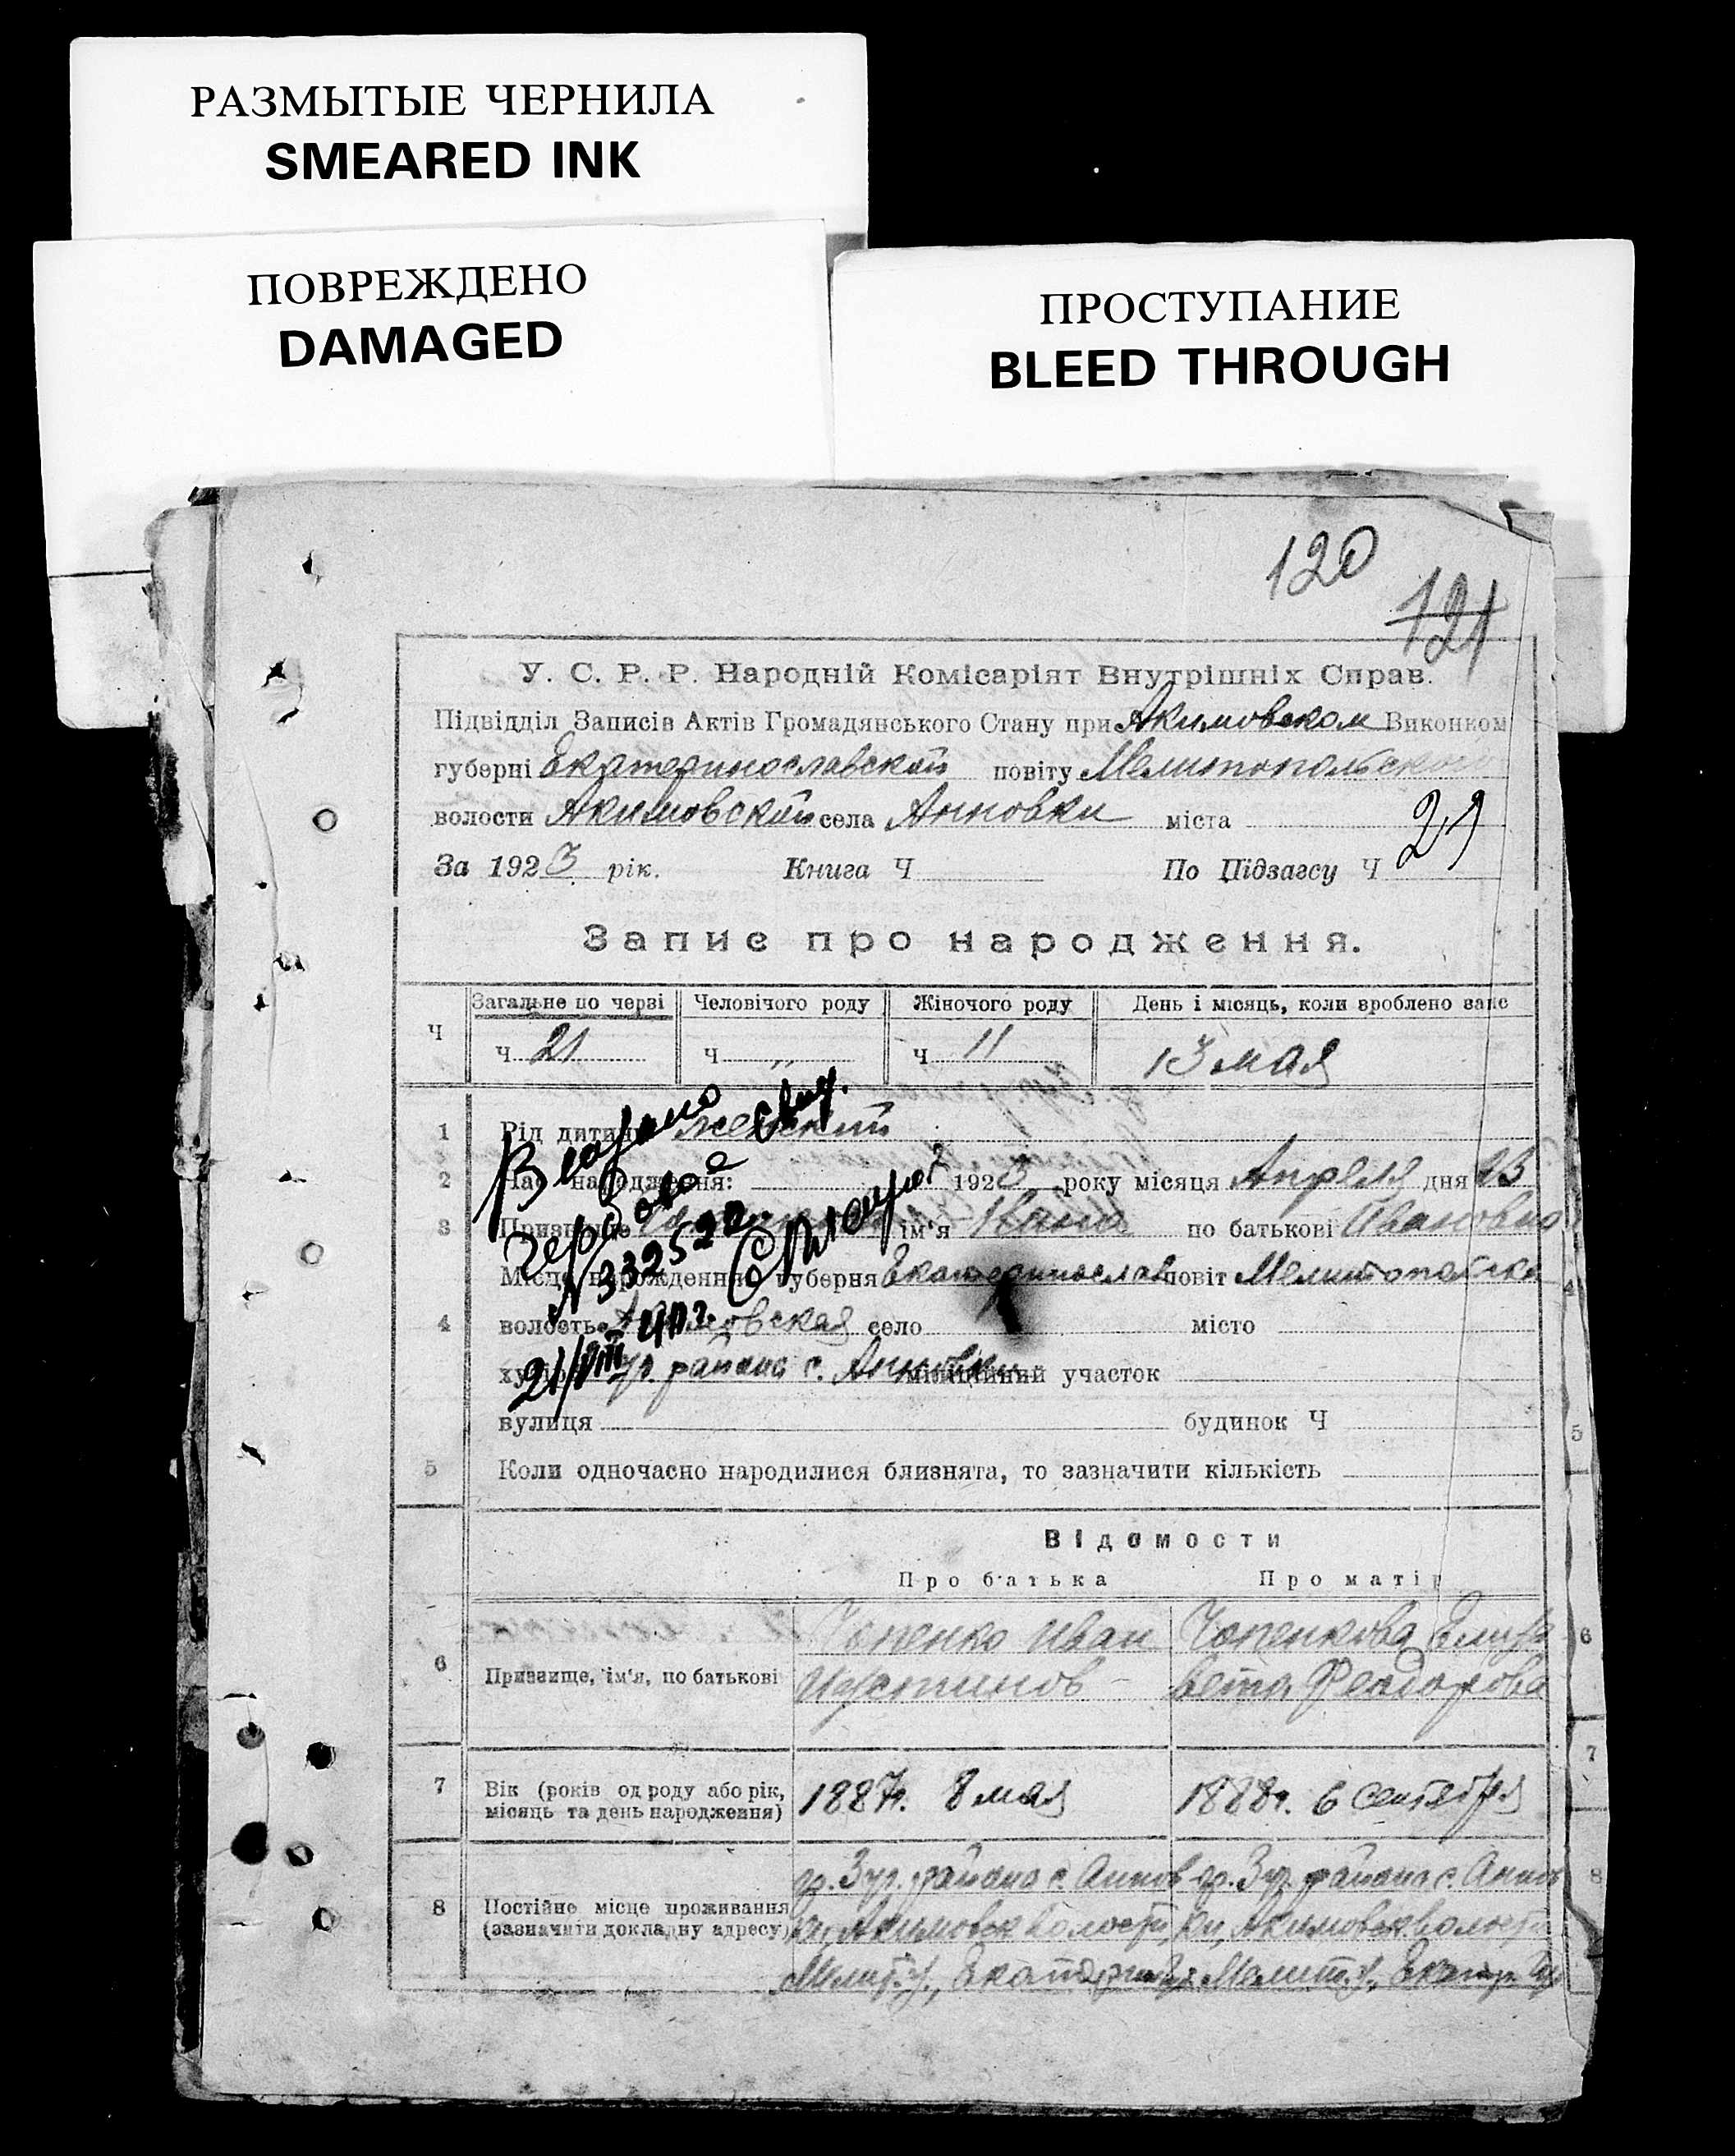 РАЗМЫТЫЕ ЧЕРНИЛА
SMEARED INK
ПОВРЕЖДЕНО
DAMAGED
ПРОСТУПАНИЕ
BLEED THROUGH
120
121
У. С. Р. Р. Народній Комісаріят Внутрішніх Справ.
Підвідділ Записів Актів Громадянського Стану при Акимовском Виконком
губерні Екатеринославской повіту Мелитопольского
волости Акимовской села Анновки міста
21
За 1923 рік. Книга Ч По Підзагсу Ч
Запис про народження.
Ч Загальне по черзі Человічого роду Жіночого роду День і місяць, коли зроблено запис
Ч 21 Ч „ Ч 11 13 мая
1 Рід дитини женский
2 Час народження: 1923 року місяця Апреля дня 23
3 Призвище ім'я по батькові Ивановна
Місце народження губерня Екатеринослав повіт Мелитопольск
4 волость Акимовская село місто
хутір ур. района с. Анновки міліційний участок
вулиця будинок Ч
5 Коли одночасно народилися близнята, то зазначити кількість
Выдано свид.
герб
N 332522
21/VIII 41 г.
Відомости
Про батька Про матір
6 Призвище, ім'я, по батькові
Чопенко Иван Чопенкова Елиза
Иустинов вета Феодорова
7 Вік (років од роду або рік, місяць та день народження) 1887 г. 8 мая 1888 г. 6 сентября
8 Постійне місце проживання (зазначити докладну адресу)
гр. 3 ур. района с. Аннов гр. 3 ур. района с. Аннов
ки, Акимовск волости, ки, Акимовск волости
Мелит. у., Екатерин Мелит. у., Екатер.
5
6
7
8